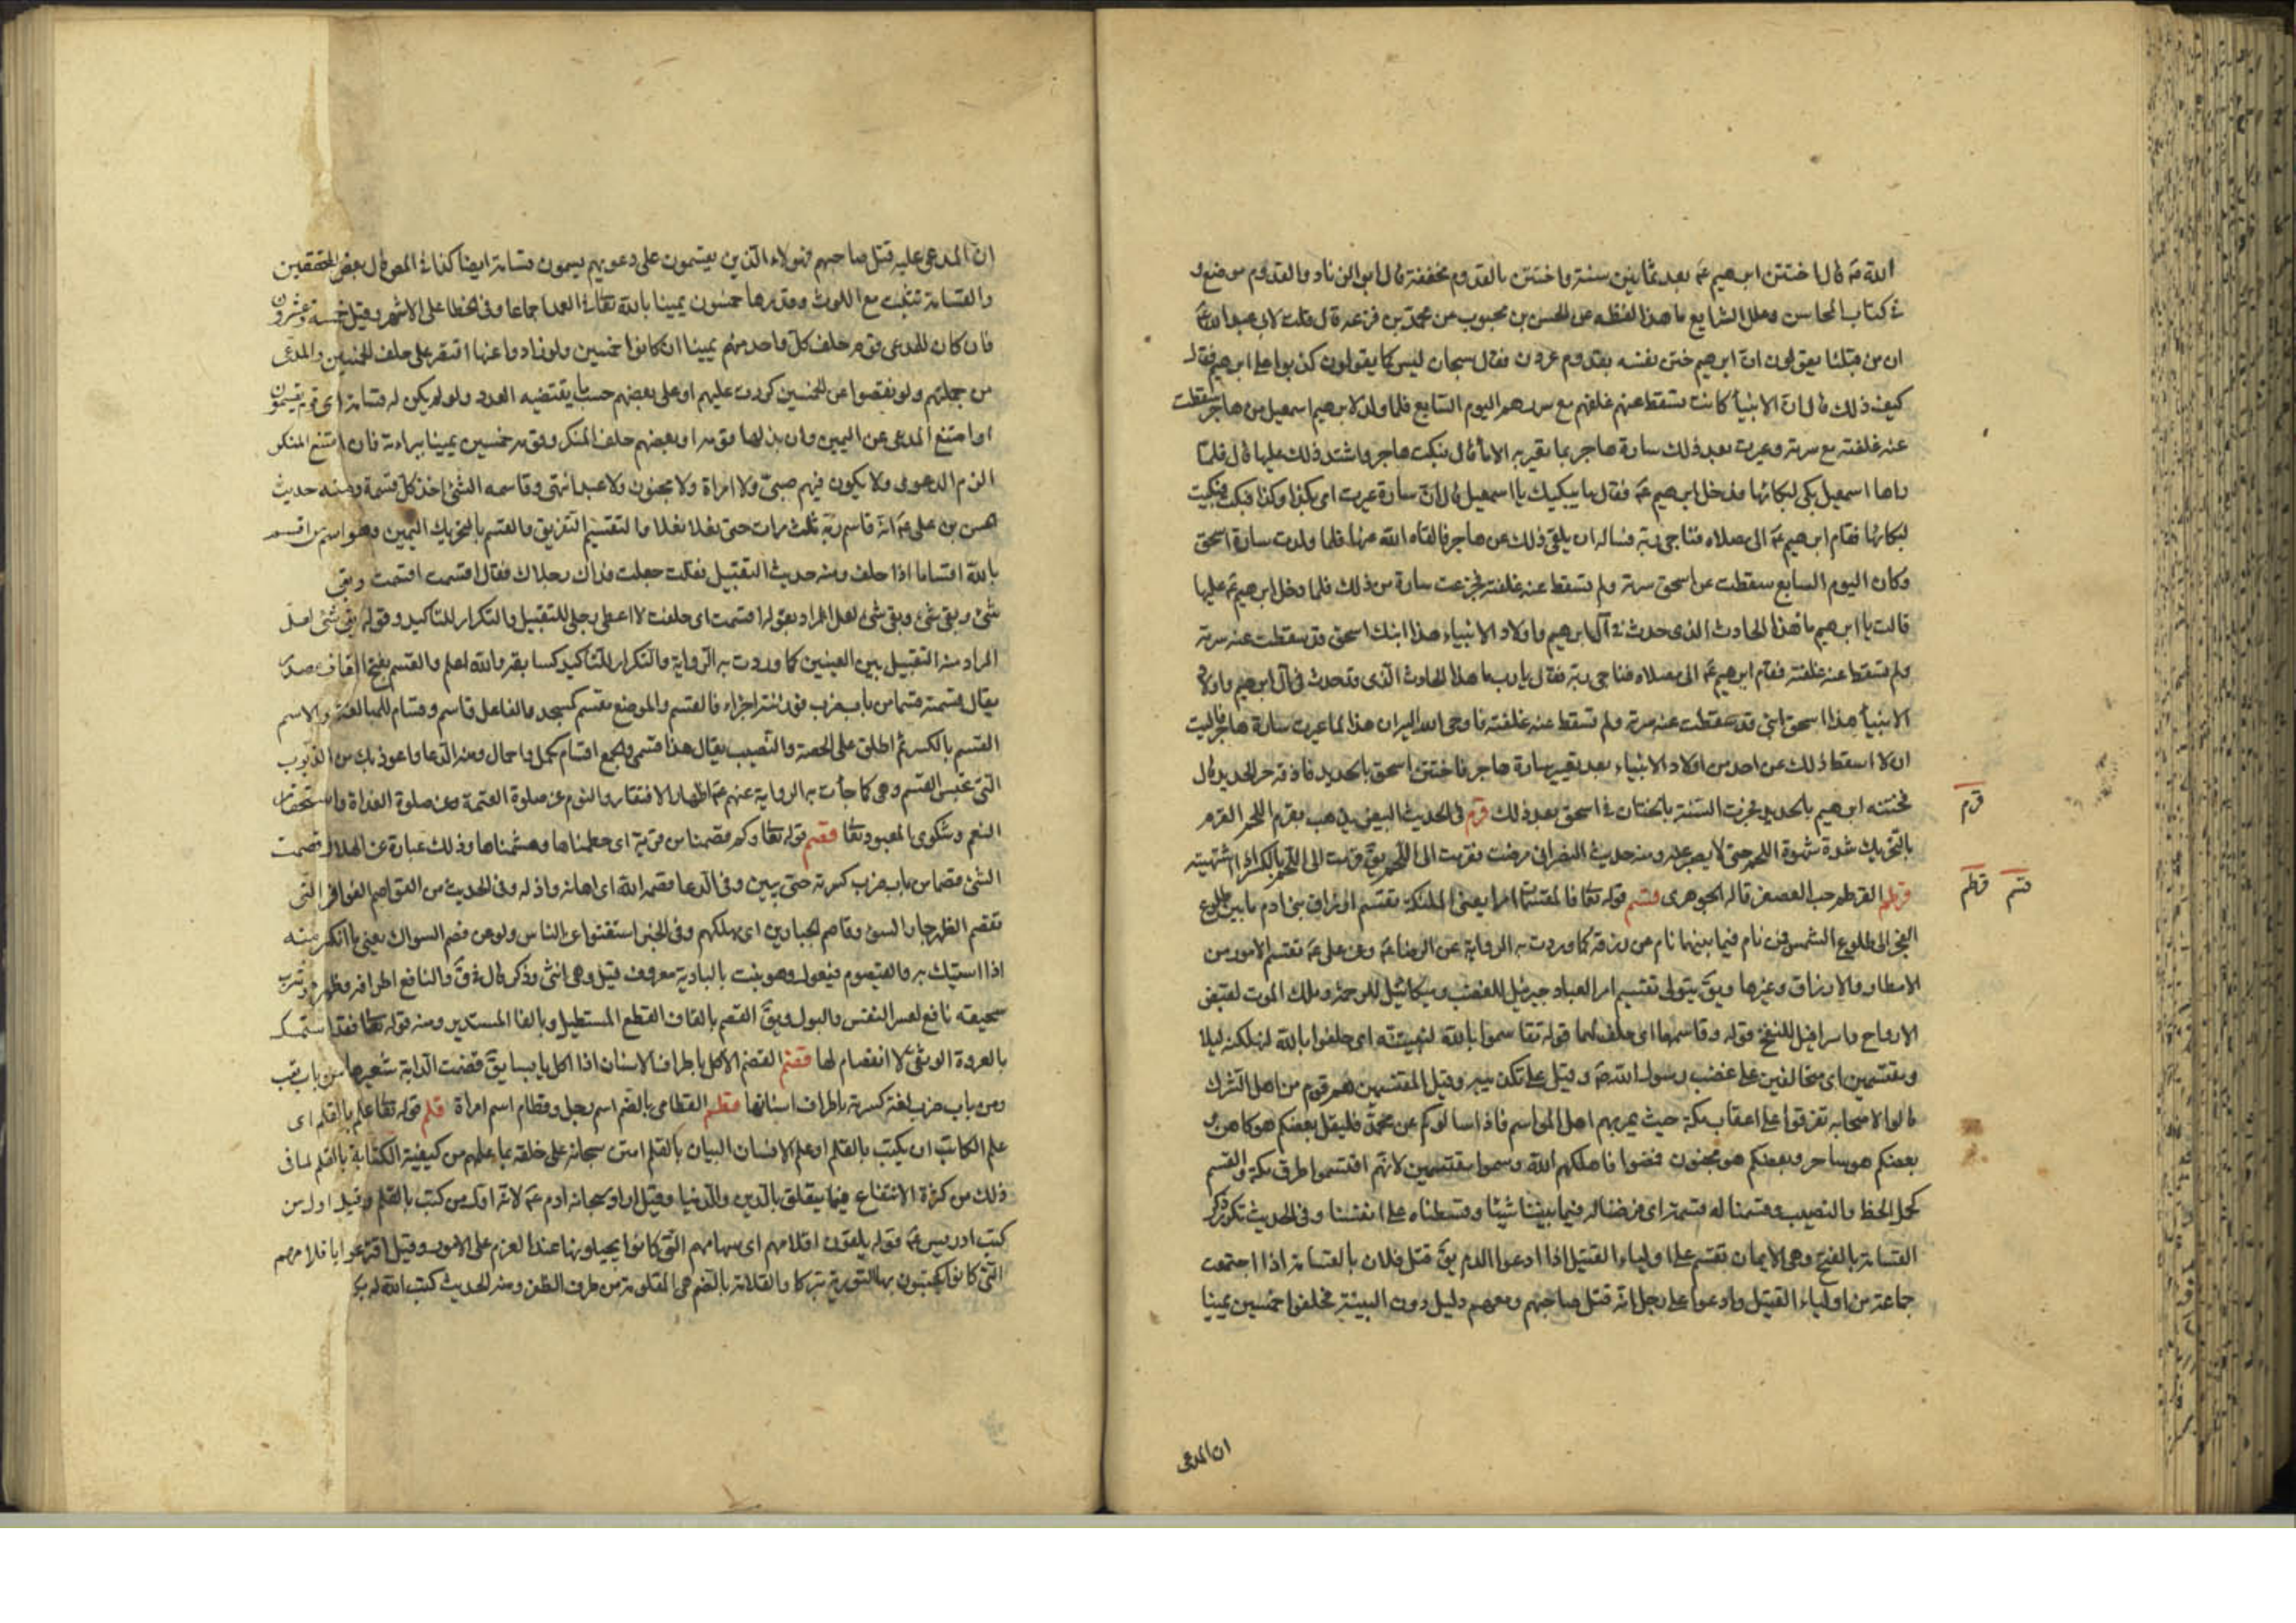 الله صّه قال اختتن ابرهيم عّم بعد ثمانين سنة واختتن بالقدوم مخففة قال ابوالزناد والقدوم موضع و
في كتاب المحاسن وعلل الشرايع ما هذا لفظه عن الحسن بن محبوب عن محمد بن قزعه قال قلت لابي عبدالله عّ
ان من قبلنا يقولون انّ ابرهيم ختن نفسه بقدوم على دن فقال سبحان ليس كما يقولون كذبوا على ابرهيم فقلت
كيف ذلك قال انّ الانبيأ كانت تسقط عنهم غلفهم مع سررهم اليوم السّابع فلما ولد لابرهيم اسمعيل من هاجر سقطت
عنه غلفته مع سرته وعيرت بعد ذلك سارة هاجر بما تعير به الامأ قال فبكت هاجر واشتد ذلك عليها قال فلمّا
راها اسمعيل بكى لبكائها فدخل ابرهيم عّم فقال ما يبكيك يا اسمعيل قال انّ سارة عيرت امي بكذا وكذا فبكت فبكيت
لبكائها فقام ابرهيم عّم الى مصلاه فناجى ربّه فساله ان يلقى ذلك عن هاجر فالقاه الله عنها فلما ولدت سارة اسحق
وكان اليوم السابع سقطت عن اسحق سرته ولم تسقط عنه غلفته فجزعت سارة من ذلك فلما دخل ابرهيم عّم عليها
قالت يا ابرهيم ما هذا الحادث الذى حدث في آل ابرهيم واولاد الانبياء هذا ابنك اسحق قد سقطت عنه سرته
ولم تسقط عنه غلفته فقام ابرهيم عّم الى مصلاه فناجى ربّه فقال يا رب ما هذا الحادث الذى قد حدث فى آل ابرهيم واولاد
الانبيأ هذا اسحق ابنى قد سقطت عنه سرته ولم تسقط عنه غلفته فاوحى الله اليه ان هذا لما عيرت سارة هاجر فاليت
ان لا اسقط ذلك عن احد من اولاد الانبياء بعد تعير سارة هاجر فاختتن اسحق بالحديد فاذقه حر الحديد قال
فختنه ابرهيم بالحديد فجرت السّنة بالختان في اسحق بعد ذلك قرم فى الحديث البيض يذهب بقرم اللحم القرم
بالتحريك شدة شهوة اللحم حتى لا يصبر عنه ومنه حديث النصرانى مرضت فقرمت الى اللحم يقّ قرمت الى اللّحم بالكسر اذا اشتهيته
قرطم القرطم حب العصفر قاله الجوهرى قسم قوله تعّا فالمقسّمات امرا يعنى الملئكة تقسم ارزاق بنى ادم ما بين طلوع
الفجر الى طلوع الشمس فمن نام فيما بينهما نام عن رزقه كما وردت به الرواية عن الرضا عّه وعن على عّه تقسم الامور من
الامطار والارزاق وغيرها ويقّ يتولى تقسيم امر العباد جبرئيل للغضب وميكائيل للرحمة وملك الموت لقبض
الارواح واسرافيل للنفخ قوله وقاسمهما اى حلف لهما قوله تقاسموا بالله لنبيتنّه اى حلفوا بالله لنهلكنه ليلا
ومقتسمين اى متحالفين على غضب رسول الله صّه وقيل على تكذيبه وقيل المقتسمين هم قوم من اهل الشّرك
قالوا لاصحابه تفرقوا على اعقاب مكة حيث يمر بهم اهل المواسم فاذا سالوكم عن محمّد فليقل بعضكم هو كاهن و
بعضكم هو ساحر وبعضكم هو مجنون فمضوا فاهلكهم الله وسموا مقتسمين لانهّم اقتسموا طرق مكة والقسم
كحمل الحظ والنصيب وقسمنا له قسمة اى فرضنا له فيما بيننا شيئا وقسطناه على انفسنا وفى الحديث تكرر ذكر
القسامة بالفتح وهى الايمان تقسم على اولياء القتيل اذا ادعوا الدم يقّ قتل فلان بالقسامة اذا اجتمعت
جماعة من اولياء القتيل وادعوا على رجل انّه قتل صاحبهم ومعهم دليل دون البينة فحلفوا خمسين يمينا
ان المدعى
قرم
قسم قرطم
انّ المدعى عليه قتل صاحبهم فهولاء الذين يقسمون على دعويهم يسمون قسامة ايضا كذا في المص قال بعض المحققين
والقسامة تثبت مع اللوث وقدرها خمسون يمينا بالله تعّا في العمد اجماعا وفى الخطا على الاشهر وقيل خمسة وعشرون
فان كان للمدعى قوم حلف كلّ واحد منهم يمينا ان كانوا خمسين ولو زادوا عنها اقتصر على حلف الخمسين والمدّعى
من جملتهم ولو نقصوا عن الخمسين كررت عليهم او على بعضهم حسب ما يقتضيه العدد ولو لم يكن له قسامة اى قوم يقسمون
او امتنع المدعى عن اليمين وان بذلها قومه او بعضهم حلف المنكر وقومه خمسين يمينا ببراءته فان امتنع المنكر
الزم الدعوى ولا يكون فيهم صبىّ ولا امراة ولا مجنون ولا عبد انتهى وقاسمه الشئ اخذ كل قسمة ومنه حديث
الحسن بن على عّم انّه قاسم ربّه ثلث مرات حتى نعلا نعلا والتقسيم التفريق والقسم بالتحريك اليمين وهو اسم من اقسم
بالله اقساما اذا حلف ومنه حديث التقبيل فقلت جعلت فداك رجلاك فقال اقسمت اقسمت وبقى
شئ وبقى شئ وبقى شئ لعل المراد بقوله اقسمت اى حلفت لا اعطى رجلى للتقبيل والتكرار للتاكيد وقوله بقى شئ لعلّ
المراد منه التقبيل بين العينين كما وردت به الرّواية والتكرار للتّاكيد كسابقه والله اعلم والقسم بفتح القاف مصدر
يقال قسمته قسما من باب ضرب فرزته اجزاء فانقسم والموضع مقسم كمسجد والفاعل قاسم وقسام للمبالغة والاسم
القسم بالكسر ثم اطلق على الحصة والنّصيب يقال هذا قسمى والجمع اقسام كحمل واحمال ومنه الدّعا واعوذ بك من الذّنوب
التّى تحبس القسم وهى كما جأت به الرواية عنهم عّم اظهار الافتقار والنوم عن صلوة العتمة وعن صلوة الغداة واستحقار
النعم وشكوى المعبود تعّا قصم قوله تعّا وكم قصمنا من قرية اى حطمناها وهشمناها وذلك عبارة عن الهلاك وقصمت
الشئ قصما من باب ضرب كسرته حتى يبين وفى الدّعا قصمه الله اى اهانه واذله وفى الحديث من القواصم الفواقر التّى
تقصم الظهر جار السوء وقاصم الجبارين اى مهلكهم وفى الخبر استغنوا عن النّاس ولو عن قصم السواك يعنى ما انكسر منه
اذا استيك به والقيصوم فيعول وهو نبت بالبادية معروف قيل وهى انثى وذكر قال في قّ والنافع اطرافه وزهره مرّ وشرب
سحيقه نافع لعسر النفس والبول ويقّ القصم بالقاف القطع المستطيل وبالفا المستدير ومنه قوله تعّا فقد استمسك
بالعروة الوثقى لا انفصام لها قضم القضم الاكل باطراف الاسنان اذا اكل يابسا يقّ قضمت الدّابة شعيرها من باب تعب
ومن باب ضرب لغة كسرته باطراف اسنانها قطم القطامى بالضم اسم رجل وقطام اسم امراة قلم قوله تعّا علم بالقلم اى
علم الكاتب ان يكتب بالقلم او علم الانسان البيان بالقلم امتن سبحانه على خلقه بما علمهم من كيفية الكتابة بالقلم لما فى
ذلك من كثرة الانتفاع فيما يتعلق بالّدين والدّنيا وقيل اراد سبحانه ادم عّم لانّه اوّل من كتب بالقلم وقيل اول من
كتب ادريس عّم قوله يلقون اقلامهم اى سهامهم التّى كانوا يجيلونها عند العزم على الامور وقيل اقترعوا باقلامهم
التّى كانوا يكتبون بها التورية تبركا والقلامة بالضم هى المقلومة من طرف الظفر ومنه الحديث كتب الله له بكل